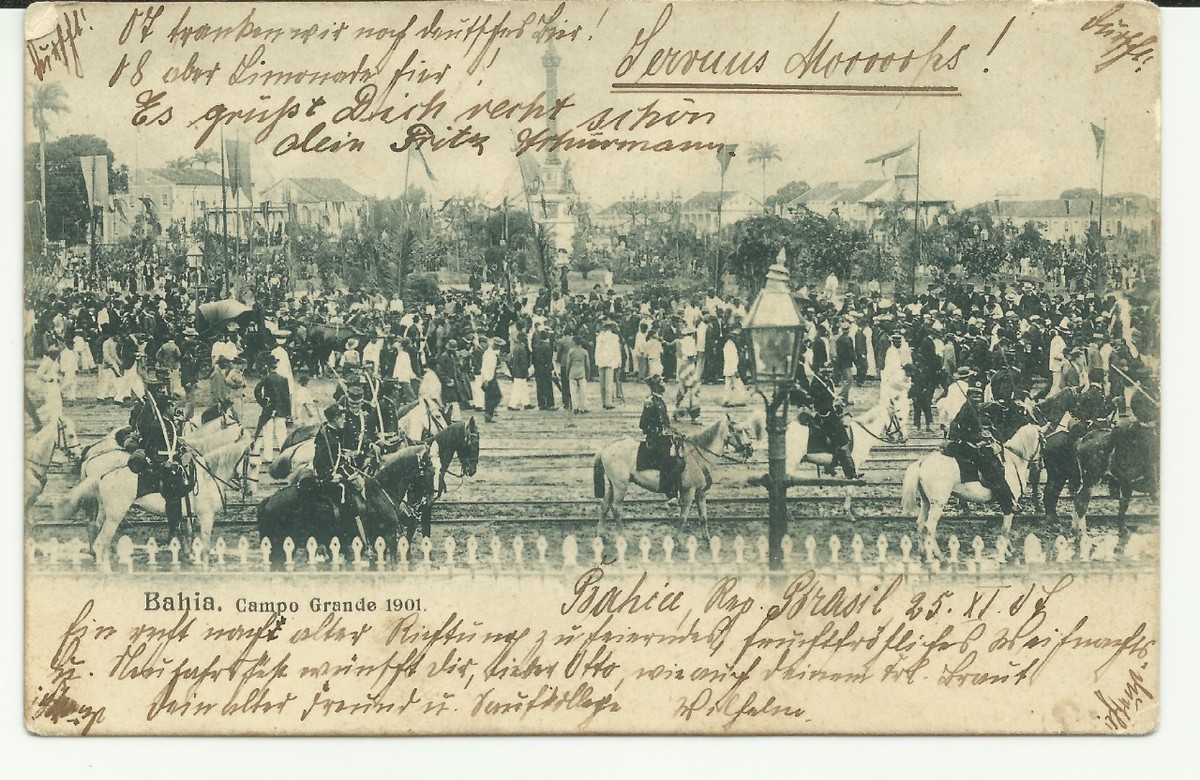 07 tranken wir noch deutsches Bier!
08 aber Limonade hier!
Es grüßt Dich recht schön
dein Fritz Schürmann.
Servus Mooooohs!
Durscht!
Durscht!
Bahia. Campo Grande 1901.
Bahia, Rep. Brasil, 25. XI. 07
Ein recht nach alter Richtung zu feierndes, feuchtfröhliches Weihnachts
u. Neujahrsfest wünscht dir, lieber Otto, wie auch deinem Frl. Braut
Dein alter Freund u. Saufkollege Wilhelm.